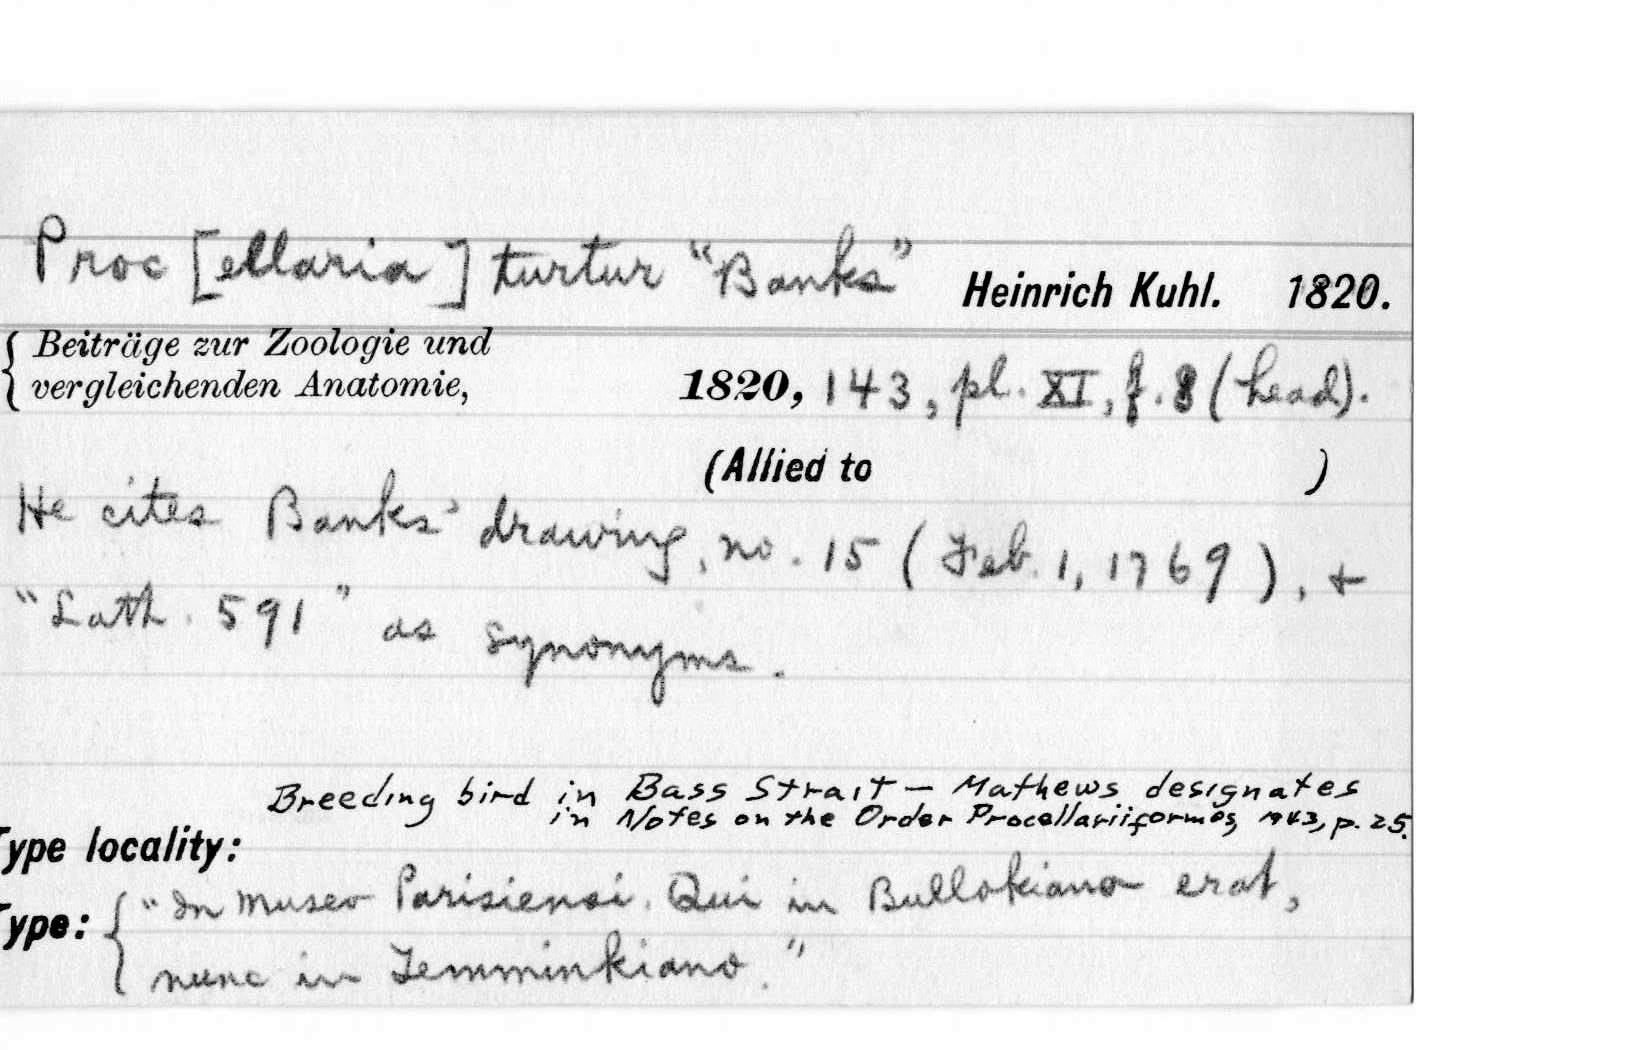 Proc [ellaria] turtur "Banks" Heinrich Kuhl. 1820.
Beiträge zur Zoologie und
vergleichenden Anatomie, 1820, 143, pl. XI, f. 8 (head).
(Allied to )
He cites Banks' drawing, no. 15 (Feb. 1, 1769), +
"Lath. 591" as synonyms.
Breeding bird in Bass Strait — Mathews designates
in Notes on the Order Procellariiformes, 1943, p. 25.
Type locality:
Type: "In Museo Parisiensi. Qui in Bullokiano erat,
nunc in Temminkiano."